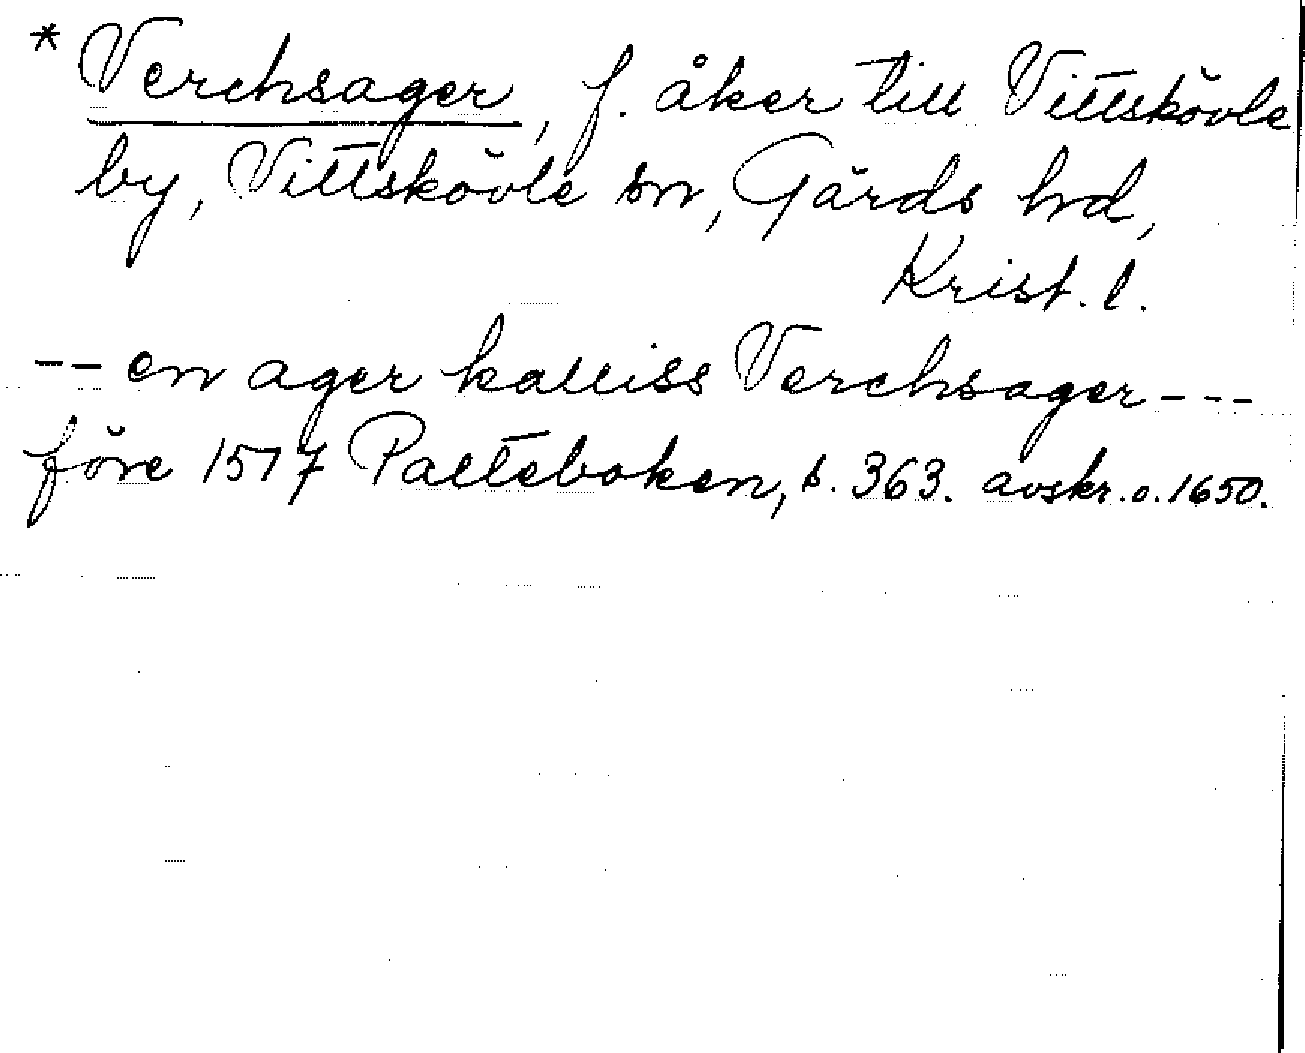 * Verchsager, f. åker till Vittskövle
by, Vittskövle sn, Gärds hd,
Krist. l.
-- en ager kalliss Verchsager ---
före 1517 Palteboken, s. 363. avskr. o. 1650.